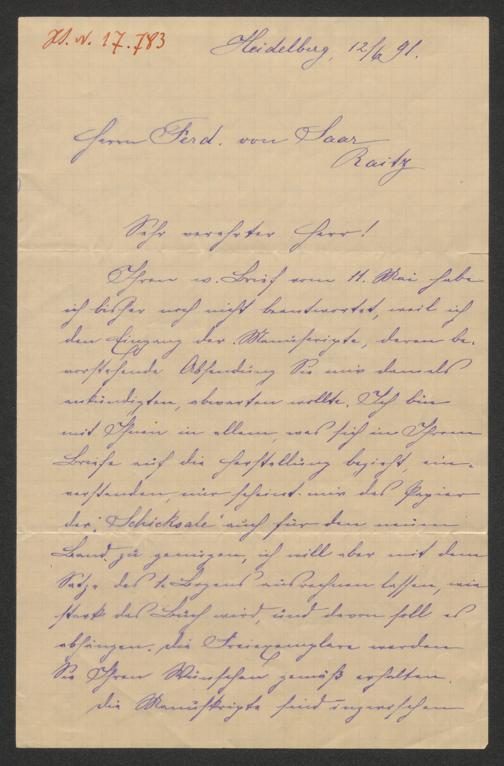 H.N. 17.783
Heidelberg, 12/6 91.
Herrn Ferd. von Saar
Raitz
Sehr verehrter Herr!
Ihren w. Brief vom 11. Mai habe
ich bisher noch nicht beantwortet, weil ich
den Eingang der Manuscripte, deren be-
vorstehende Absendung Sie mir damals
ankündigten, abwarten wollte. Ich bin
mit Ihnen in allem, was sich in Ihrem
Briefe auf die Herstellung bezieht, ein-
verstanden, nur scheint mir das Papier
der „Schicksale“ auch für den neuen
Band zu genügen, ich will aber mit dem
Satz des 1. Bogens ausrechnen lassen, wie
stark das Buch wird, und davon soll es
abhängen. Die Freiexemplare werden
Sie Ihren Wünschen gemäß erhalten.
Die Manuskripte sind inzwischen